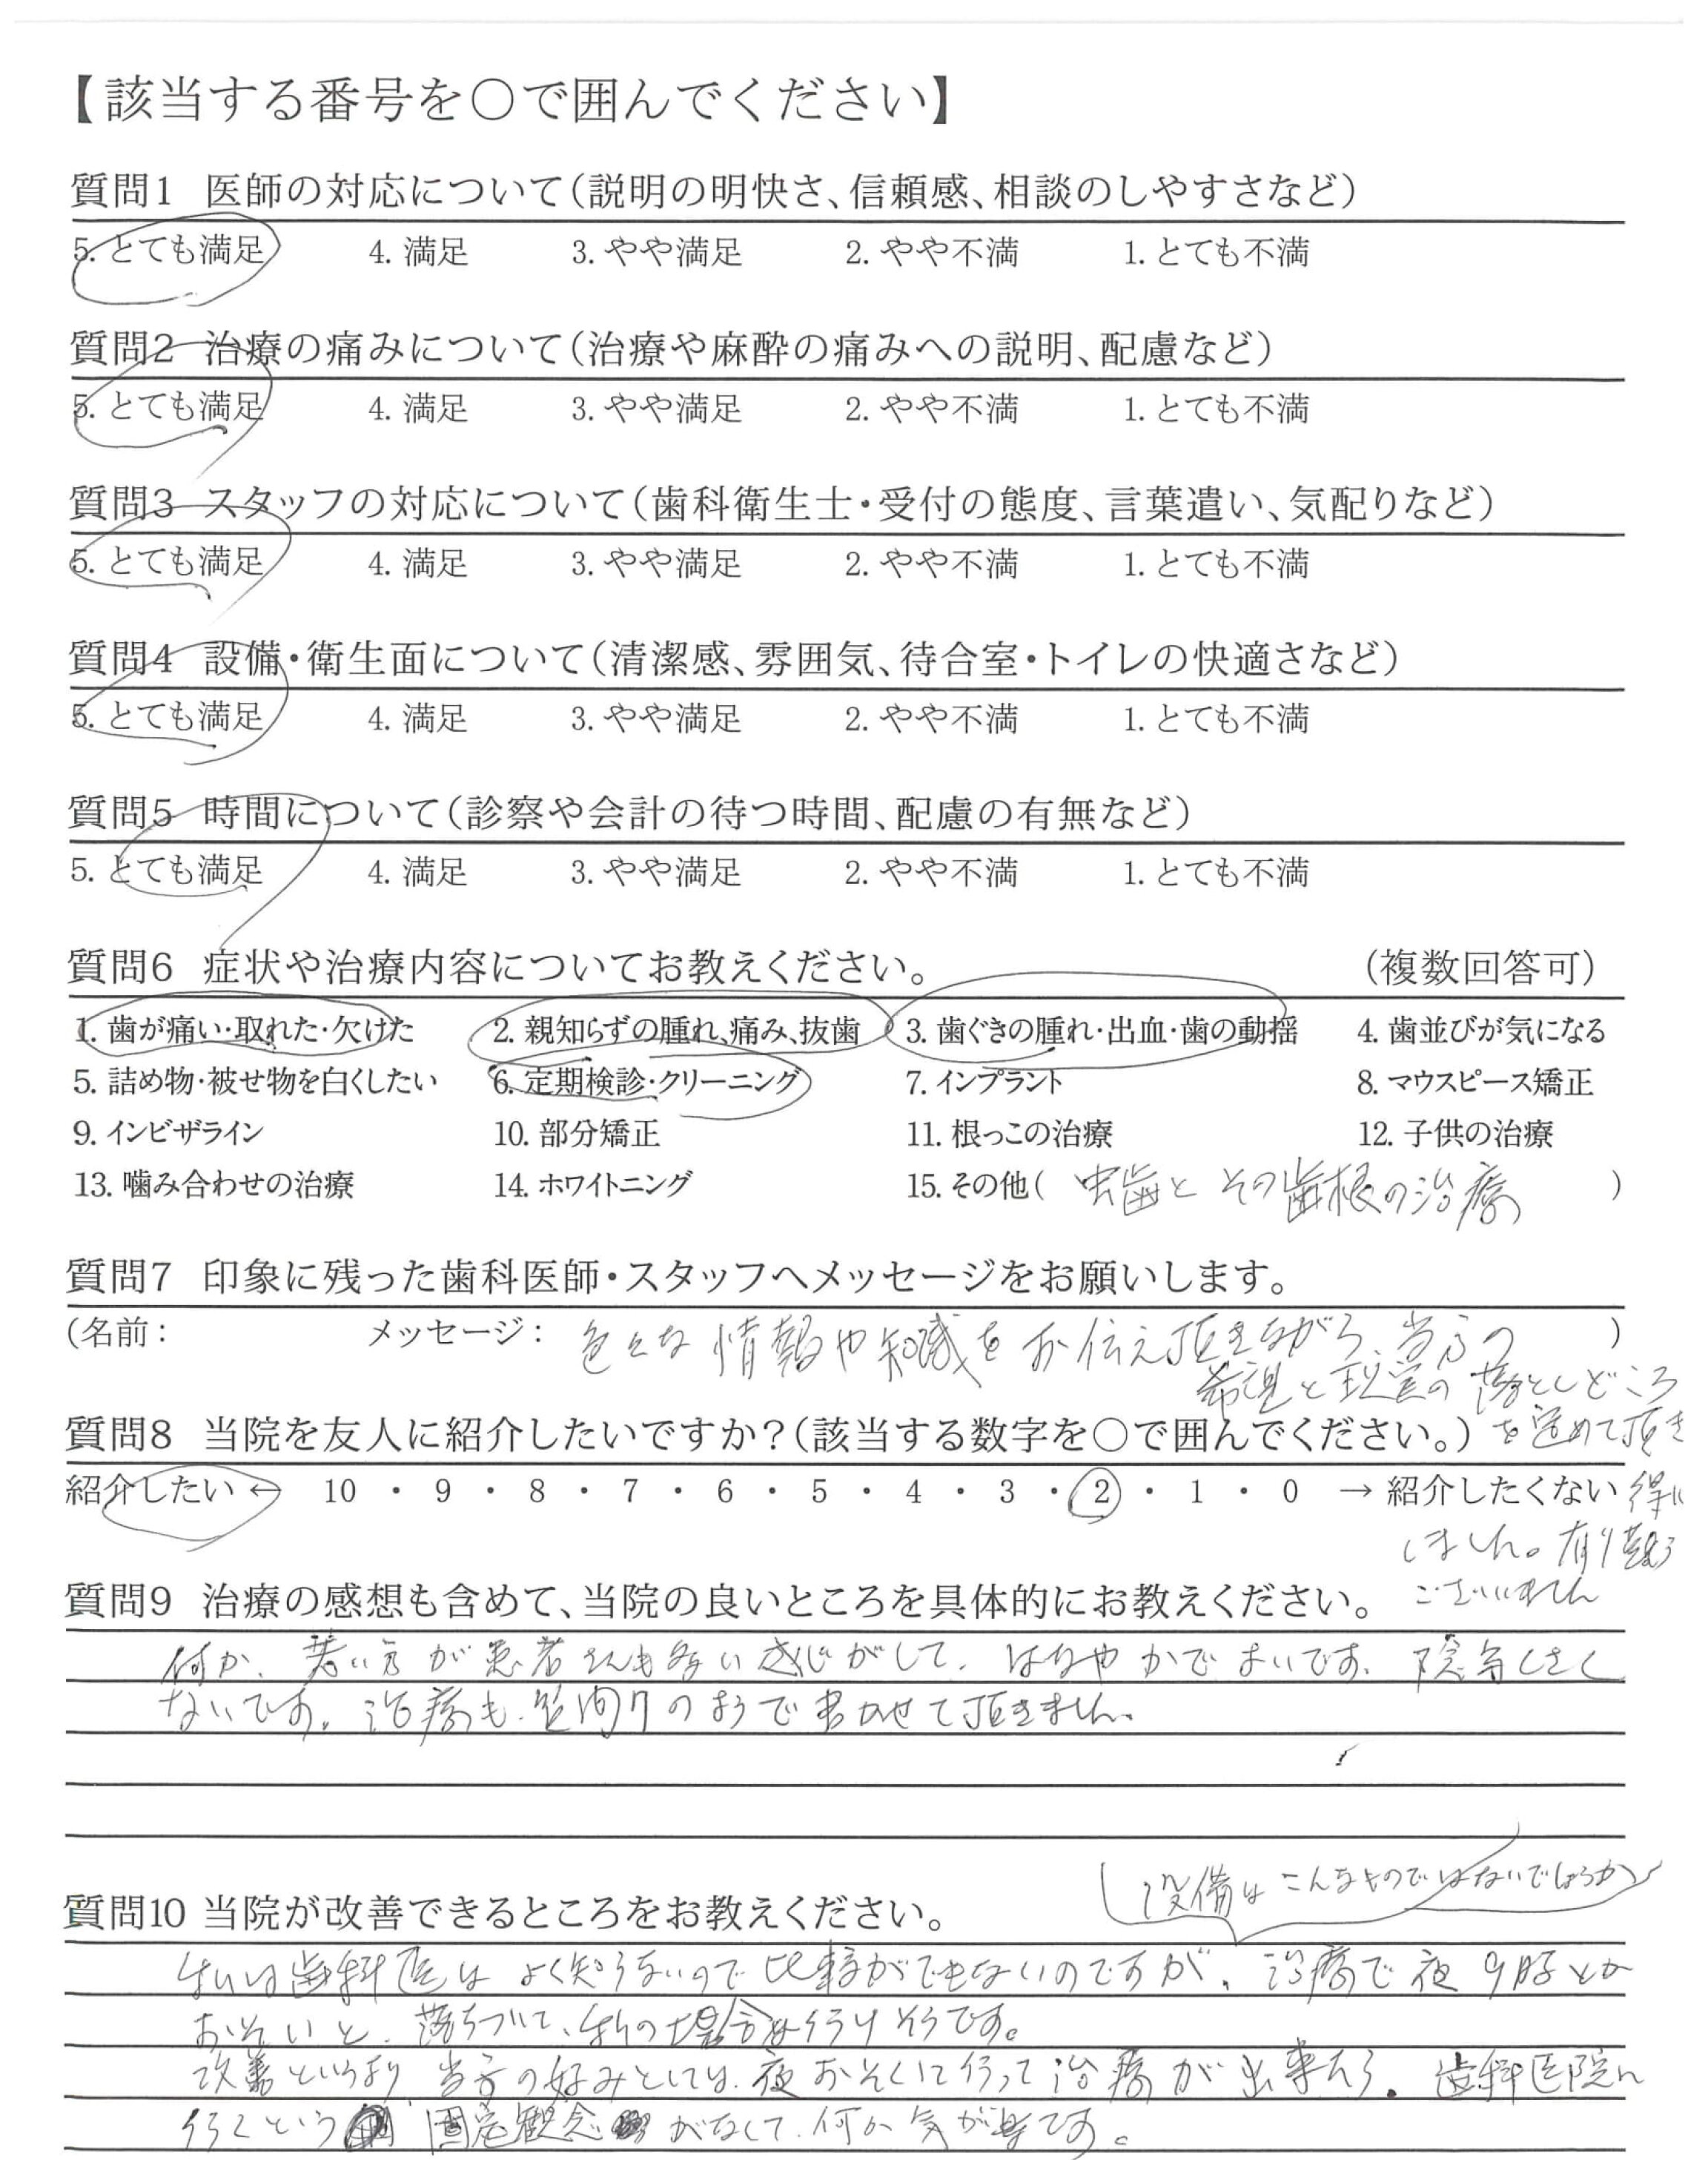 【該当する番号を〇で囲んでください】
質問1 医師の対応について(説明の明快さ、信頼感、相談のしやすさなど)
5. とても満足 4. 満足 3. やや満足 2. やや不満 1. とても不満
質問2 治療の痛みについて(治療や麻酔の痛みへの説明、配慮など)
5. とても満足 4. 満足 3. やや満足 2. やや不満 1. とても不満
質問3 スタッフの対応について(歯科衛生士・受付の態度、言葉遣い、気配りなど)
5. とても満足 4. 満足 3. やや満足 2. やや不満 1. とても不満
質問4 設備・衛生面について(清潔感、雰囲気、待合室・トイレの快適さなど)
5. とても満足 4. 満足 3. やや満足 2. やや不満 1. とても不満
質問5 時間について(診察や会計の待つ時間、配慮の有無など)
5. とても満足 4. 満足 3. やや満足 2. やや不満 1. とても不満
質問6 症状や治療内容についてお教えください。 (複数回答可)
1. 歯が痛い・取れた・欠けた 2. 親知らずの腫れ、痛み、抜歯 3. 歯ぐきの腫れ・出血・歯の動揺 4. 歯並びが気になる
5. 詰め物・被せ物を白くしたい 6. 定期検診・クリーニング 7. インプラント 8. マウスピース矯正
9. インビザライン 10. 部分矯正 11. 根っこの治療 12. 子供の治療
13. 噛み合わせの治療 14. ホワイトニング 15. その他( 虫歯と その歯根の治療 )
質問7 印象に残った歯科医師・スタッフへメッセージをお願いします。
(名前: メッセージ: 色々な情報や知識をお伝え頂きながら、当方の )
希望と現実の落としどころ
を進めて頂き
質問8 当院を友人に紹介したいですか?(該当する数字を〇で囲んでください。)
紹介したい ↔ 10 ・ 9 ・ 8 ・ 7 ・ 6 ・ 5 ・ 4 ・ 3 ・ 2 ・ 1 ・ 0 → 紹介したくない
しました。有り難う
ございました
質問9 治療の感想も含めて、当院の良いところを具体的にお教えください。
何か、若い方が患者さんも多い感じがして、はなやかでよいです。陰気くさく
ないです。治療も、質問7のようで書かせて頂きました。
質問10 当院が改善できるところをお教えください。
設備はこんなものではないでしょうか
私は歯科医はよく知らないので比較ができないのですが、治療で夜9時とか
おそいと、落ちついて、私の場合は行けそうです。
改善というより 当方の好みとしては、夜おそくに行って治療が出来たら、歯科医院に
行くという 固定観念 がなくて、何か気が楽です。